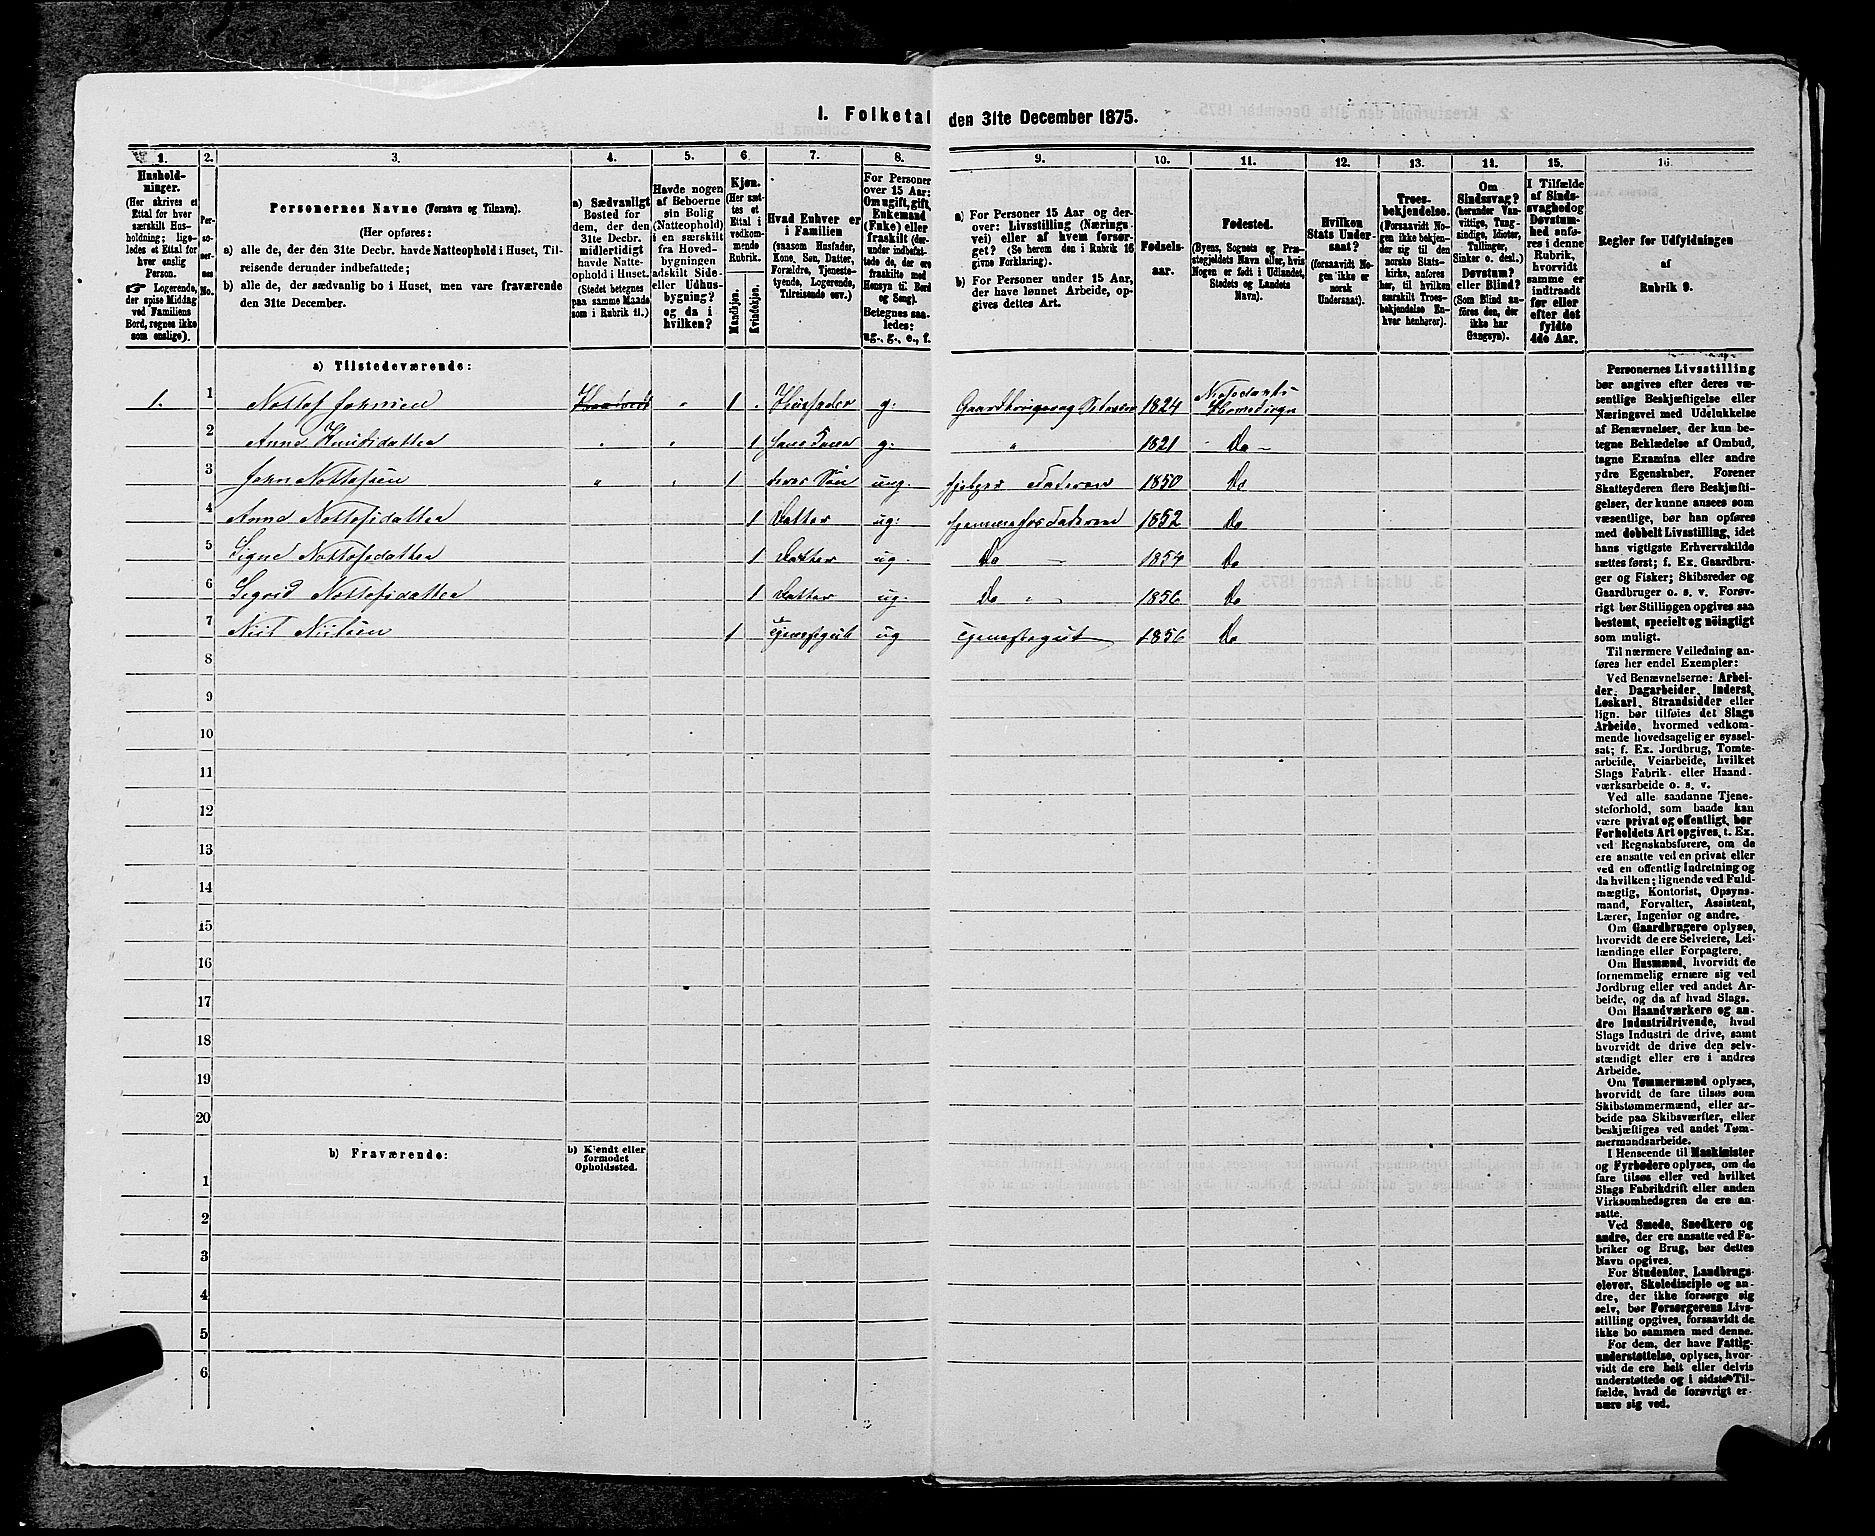 1. Folketal den 31te December 1875.
1. 2. 3. 4. 5. 6. 7. 8. 9. 10. 11. 12. 13. 14. 15. 16.
Hushold-
ninger.
(Her skrives et
Ettal for hver
særskilt Hus-
holdning; lige-
ledes et Ettal for
hver enslig
Person.
☞ Logerende,
der spise Middag
ved Familiens
Bord, regnes ikke
som enslige).
Per-
so-
ner-
nes
No.
Personernes Navne (Fornavn og Tilnavn).
(Her opføres:
a) alle de, der den 31te Decbr. havde Natteophold i Huset, Til-
reisende derunder indbefattede;
b) alle de, der sædvanlig bo i Huset, men vare fraværende
den 31te December.
a) Sædvanligt
Bosted for
dem, der den
31te Decbr.
midlertidigt
havde Natte-
ophold i Huset.
(Stedet betegnes
paa samme Maade
som i Rubrik 11.)
Havde nogen
af Beboerne
sin Bolig
(Natteophold)
i en særskilt
fra Hoved-
bygningen
adskilt Side-
eller Udhus-
bygning?
og da i
hvilken?
Kjøn.
(Her sæt-
tes et
Ettal i
vedkom-
mende
Rubrik.
Mandkjøn.
Kvindekjøn.
Hvad Enhver er
i Familien
(saasom Husfader,
Kone, Søn, Datter,
Forældre, Tjeneste-
tyende, Logerende,
Tilreisende osv.)
For Personer
over 15 Aar:
Om ugift, gift,
Enkemand
(Enke) eller
fraskilt (der-
under indbefat-
tede de, der ere
fraskilte med
Hensyn til Bord
og Seng).
Betegnes saa-
ledes:
ug., g., e., f.
a) For Personer 15 Aar og der-
over: Livsstilling (Nærings-
vei) eller af hvem forsør-
get? (Se herom den i Rubrik 16
givne Forklaring).
b) For Personer under 15 Aar,
der have lønnet Arbeide, op-
gives dettes Art.
Fødsels-
aar.
Fødested.
(Byens, Sognets og Præ-
stegjeldets Navn eller, hvis
Nogen er født i Udlandet,
Stedets og Landets
Navn).
Hvilken
Stats Under-
saat?
(forsaavidt No-
gen ikke er
norsk
Undersaat).
Troes-
bekjendelse.
(Forsaavidt No-
gen ikke bekjen-
der sig til den
norske Stats-
kirke, anføres
her, til hvilken
særskilt Troes-
bekjendelse En-
hver henhører).
Om
Sindssvag?
(herunder Van-
vittige, Tung-
sindige, Idioter,
Tullinger,
Sinker o. desl.)
Døvstum?
eller Blind?
(Som Blind an-
føres den, der
ikke har
Gangsyn).
I Tilfælde
af Sinds-
svaghed og
Døvstum-
hed anfø-
res i denne
Rubrik,
hvorvidt
samme er
indtraadt
før eller
efter det
fyldte
4de Aar.
Regler for Udfyldningen
af
Rubrik 9.
a) Tilstedeværende:
1. 1 Nottof Johnsen 1 Husfader g. Gaardbruger og Selveier 1824 Hitterdal
2 Anne Knutsdatter 1 hans Kone g. 1821 Do
3 John Nottofsen 1 deres Søn ug. hjelper Faderen 1850 Do
4 Anne Nottofsdatter 1 Datter ug. hjemme hos Faderen 1852 Do
5 Signe Nottofsdatter 1 Datter ug. Do 1854 Do
6 Sigrid Nottofsdatter 1 Datter ug. Do 1856 Do
7 Nils Nielsen 1 Tjenestgut ug Tjenestegut 1856 Do
8
9
10
11
12
13
14
15
16
17
18
19
20
b) Fraværende:
b) Kjendt eller
formodet
Opholdssted.
1
2
3
4
5
6
Personernes Livsstilling
bør angives efter deres væ-
sentlige Beskjæftigelse eller
Næringsvei med Udelukkelse
af Benævnelser, der kun be-
tegne Beklædelse af Ombud,
tagne Examina eller andre
ydre Egenskaber. Forener
Skatteyderen flere Beskjæfti-
gelser, der kunne ansees som
væsentlige, bør han opføres
med dobbelt Livsstilling, idet
hans vigtigste Erhvervskilde
sættes først; f. Ex. Gaardbru-
ger og Fisker; Skibsreder og
Gaardbruger o. s. v. Forøv-
rigt bør Stillingen opgives saa
bestemt, specielt og nøiagtigt
som muligt.
Til nærmere Veiledning an-
føres her endel Exempler:
Ved Benævnelserne: Arbei-
der, Dagarbeider, Inderst,
Løskarl, Strandsidder eller
lign. bør tilføies det Slags
Arbeide, hvormed vedkom-
mende hovedsagelig er syssel-
sat; f. Ex. Jordbrug, Tomte-
arbeide, Veiarbeide, hvilket
Slags Fabrik- eller Haand-
værksarbeide o. s. v.
Ved alle saadanne Tjene-
steforhold, som baade kan
være privat og offentligt, bør
Forholdets Art opgives, t. Ex.
ved Regnskabsførere, om de
ere ansatte ved en privat eller
ved en offentlig Indretning og
da hvilken; lignende ved Fuld-
mægtig, Kontorist, Opsyns-
mand, Forvalter, Assistent,
Lærer, Ingeniør og andre.
Om Gaardbrugere oplyses,
hvorvidt de ere Selveiere, Lei-
lændinge eller Forpagtere.
Om Husmænd, hvorvidt de
fornemmelig ernære sig ved
Jordbrug eller ved andet Ar-
beide, og da af hvad Slags.
Om Haandværkere og an-
dre Industridrivende, hvad
Slags Industri de drive, samt
hvorvidt de drive den selv-
stændigt eller ere i andres
Arbeide.
Om Tømmermænd oplyses,
hvorvidt de fare tilsøs som
Skibstømmermænd, eller ar-
beide paa Skibsværfter, eller
beskjæftiges ved andet Tøm-
mermandsarbeide.
I Henseende til Maskinister
og Fyrbødere oplyses, om de
fare tilsøs eller ved hvilket
Slags Fabrikdrift eller anden
Virksomhedsgren de ere an-
satte.
Ved Smede, Snedkere og
andre, der ere ansatte ved Fa-
briker og Brug, bør dettes
Navn opgives.
For Studenter, Landbrugs-
elever, Skoledisciple og an-
dre, der ikke forsørge sig
selv, bør Forsørgerens Livs-
stilling opgives, forsaavidt de
ikke bo sammen med denne.
For dem, der have Fattig-
understøttelse, oplyses, hvor-
vidt de ere helt eller delvis
understøttede og i sidste Til-
fælde, hvad de forøvrigt er-
nære sig ved.